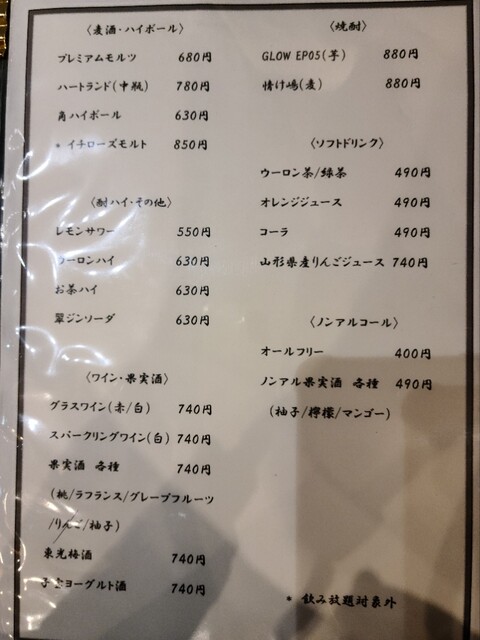 〈麦酒・ハイボール〉
プレミアムモルツ 680円
ハートランド(中瓶) 780円
角ハイボール 630円
* イチローズモルト 850円
〈酎ハイ・その他〉
レモンサワー 550円
ウーロンハイ 630円
お茶ハイ 630円
翠ジンソーダ 630円
〈ワイン・果実酒〉
グラスワイン(赤/白) 740円
スパークリングワイン(白) 740円
果実酒 各種 740円
(桃/ラフランス/グレープフルーツ
/りんご/柚子)
東光梅酒 740円
ヨーグルト酒 740円
〈焼酎〉
GLOW EP05(芋) 880円
情け嶋(麦) 880円
〈ソフトドリンク〉
ウーロン茶/緑茶 490円
オレンジジュース 490円
コーラ 490円
山形県産りんごジュース 740円
〈ノンアルコール〉
オールフリー 400円
ノンアル果実酒 各種 490円
(柚子/檸檬/マンゴー)
* 飲み放題対象外